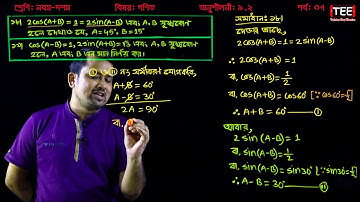 শ্রেণি: নবম-দশম বিষয়: গণিত অনুশীলনী: ৯.২ পর্ব: ০৭
TEE
১৮। √2cos(A+B) = 1 = 2sin(A-B) এবং A, B সূক্ষ্মকোণ
হলে দেখাও যে, A = 45°, B = 15°
১৯। cos(A-B) = 1, 2sin(A+B) = √3 এবং A, B সূক্ষ্মকোণ
হলে, A এবং B এর মান নির্ণয় কর।
সমাধান: ১৮।
দেওয়া আছে,
2cos(A+B) = 1 = 2sin(A-B)
∴ 2cos(A+B) = 1
বা, cos(A+B) = 1/2
বা, cos(A+B) = cos60° [∵ cos60° = 1/2]
∴ A + B = 60°
আবার,
2 sin(A-B) = 1
বা, sin(A-B) = 1/2
বা, sin(A-B) = sin30° [∵ sin30° = 1/2]
∴ A - B = 30° (ii)
A + B = 60°
A - B = 30°
2A = 90°
বা,